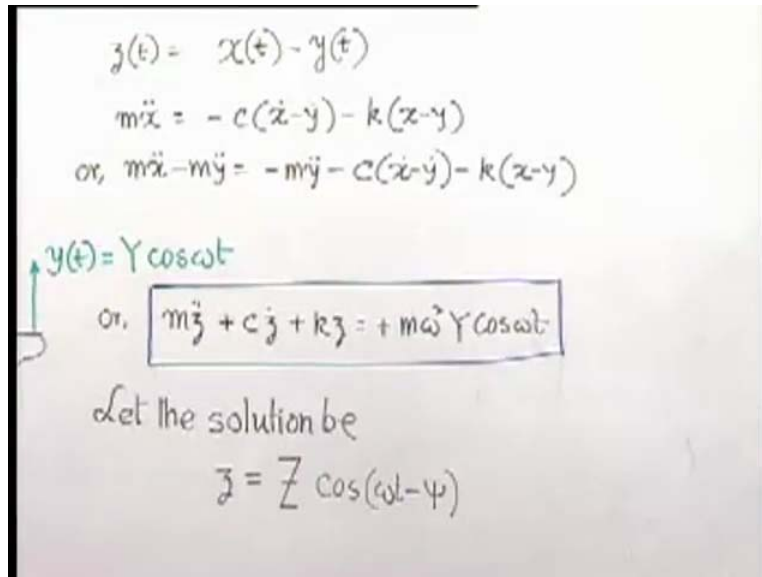 z(t) = x(t) - y(t)
mẍ = - c(ẋ-ẏ) - k(x-y)
or, mẍ - mÿ = - mÿ - c(ẋ-ẏ) - k(x-y)
y(t) = Y cos ωt
or, mz̈ + cż + kz = + mω² Y cos ωt
Let the solution be
z = Z cos(ωt-ψ)